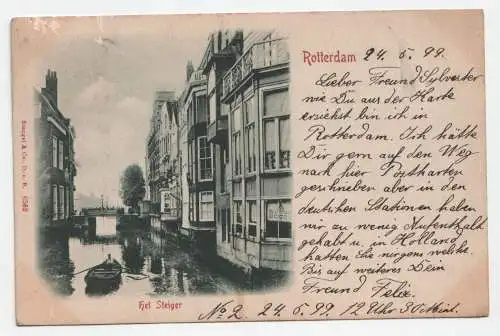 Rotterdam 24. 5. 99.
Lieber Freund Sylvester
wie Du aus der Karte
ersichst bin ich in
Rotterdam. Ich hätte
Dir gern auf den Weg
nach hier Postkarten
geschrieben aber in den
deutschen Stationen haben
wir zu wenig Aufenthalt
gehabt u. in Holland
haben Sie nirgens welche.
Bis auf weiteres Dein
Freund Felix.
Stengel & Co., D. u. B.
Het Steiger
No 2. 24. 5. 99. 12 Uhr 30 Min.